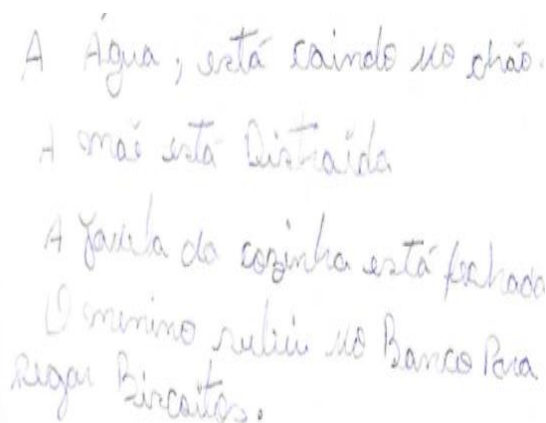 A Água, está caindo no chão.
A mãe está Distraída
A janela da cozinha está fechada
O menino subiu no Banco Para
Pegar Biscoitos.